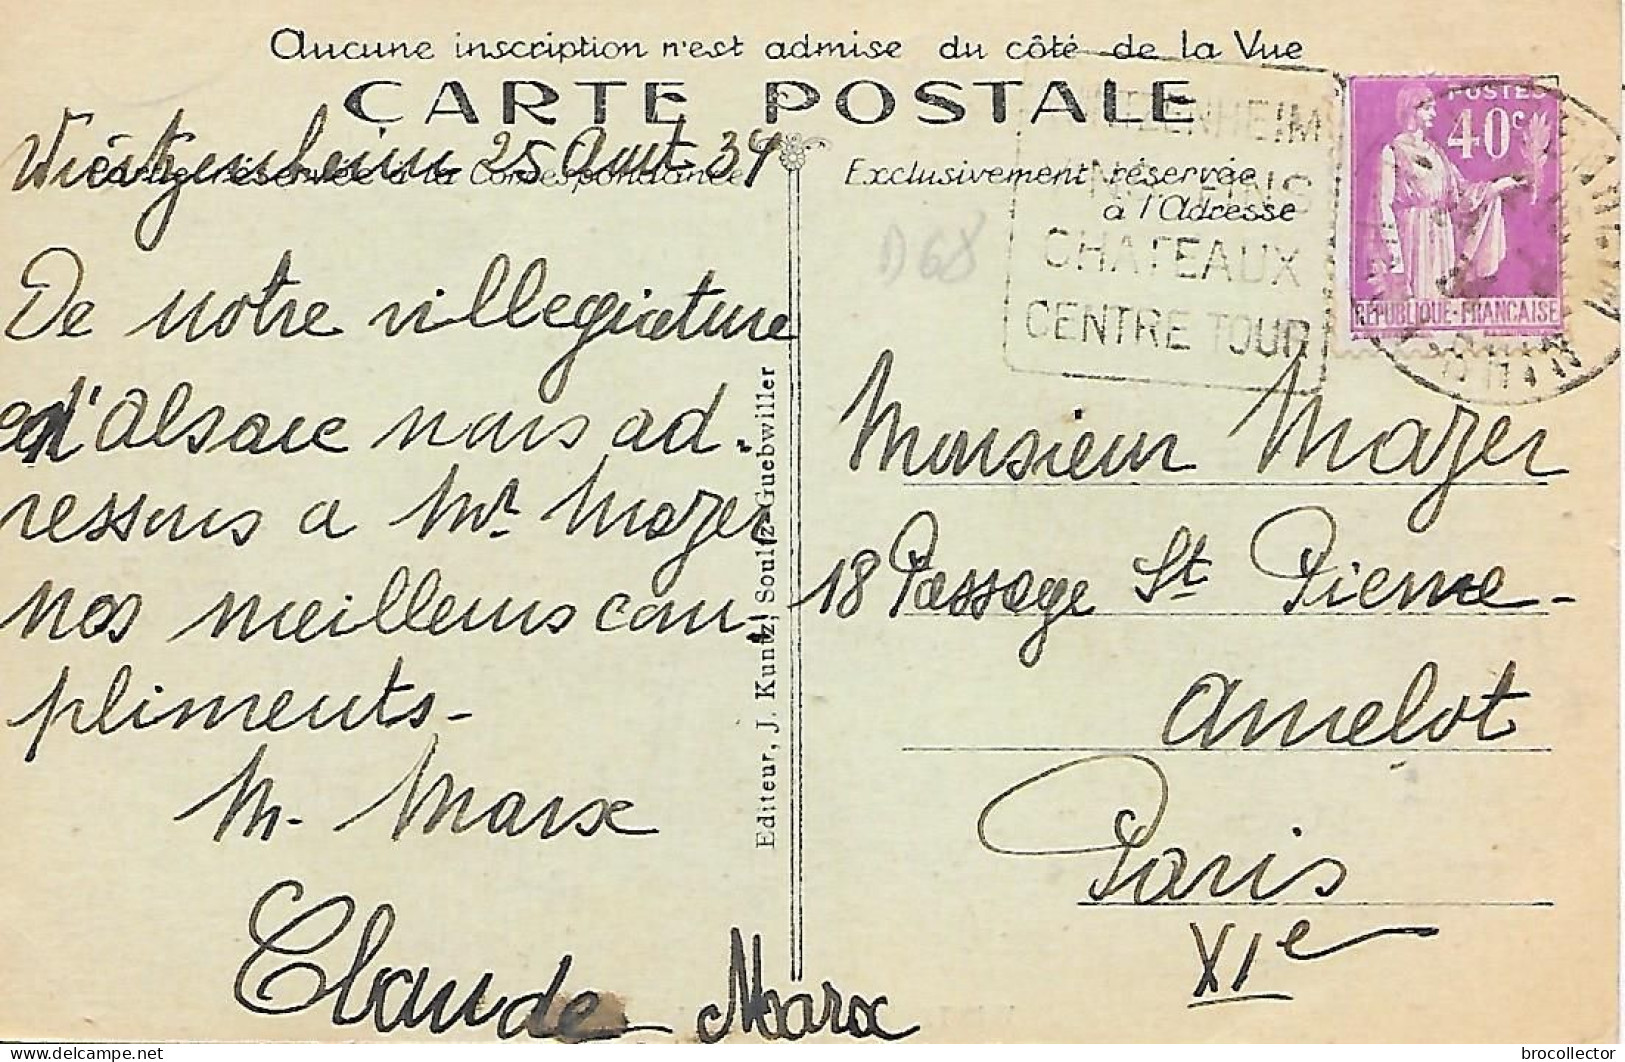 Aucune inscription n'est admise du côté de la Vue
CARTE POSTALE
Wintzenheim 25 Aout 34
Partie réservée à la Correspondance
Exclusivement réservée
à l'Adresse
D68
De notre villegiature
d'Alsace nous ad-
ressons a Mr Mazer
nos meilleurs com-
pliments-
M. Marx
Claude Marx
Editeur, J. Kuntz, Soultz-Guebwiller
WINTZENHEIM
CHATEAUX
CENTRE TOUR
POSTES
40c
REPUBLIQUE-FRANCAISE
Monsieur Mazer
18 Passage St Pierre-
Amelot
Paris
XIe
delcampe.net
brocollector